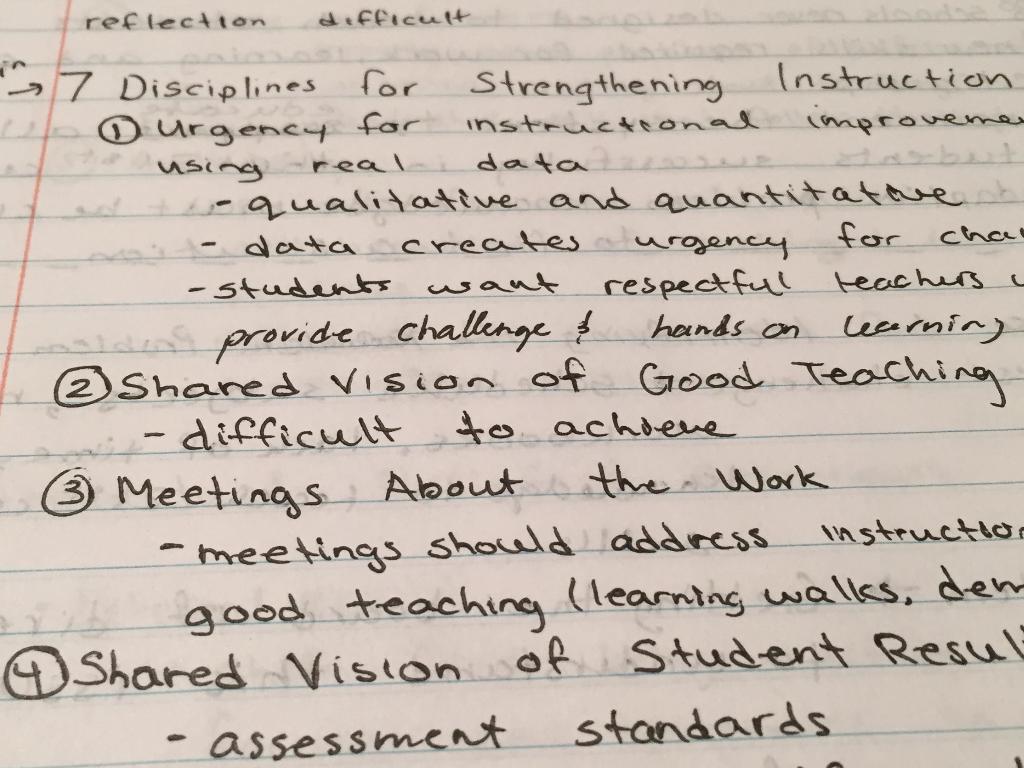 reflection difficult
in
→ 7 Disciplines for Strengthening Instruction
① Urgency for instructional improveme
using real data
- qualitative and quantitative
- data creates urgency for cha
- students want respectful teachers
provide challenge & hands on learning
② Shared Vision of Good Teaching
- difficult to achieve
③ Meetings About the Work
- meetings should address instructio
good teaching (learning walks, dem
④ Shared Vision of Student Resul
- assessment standards